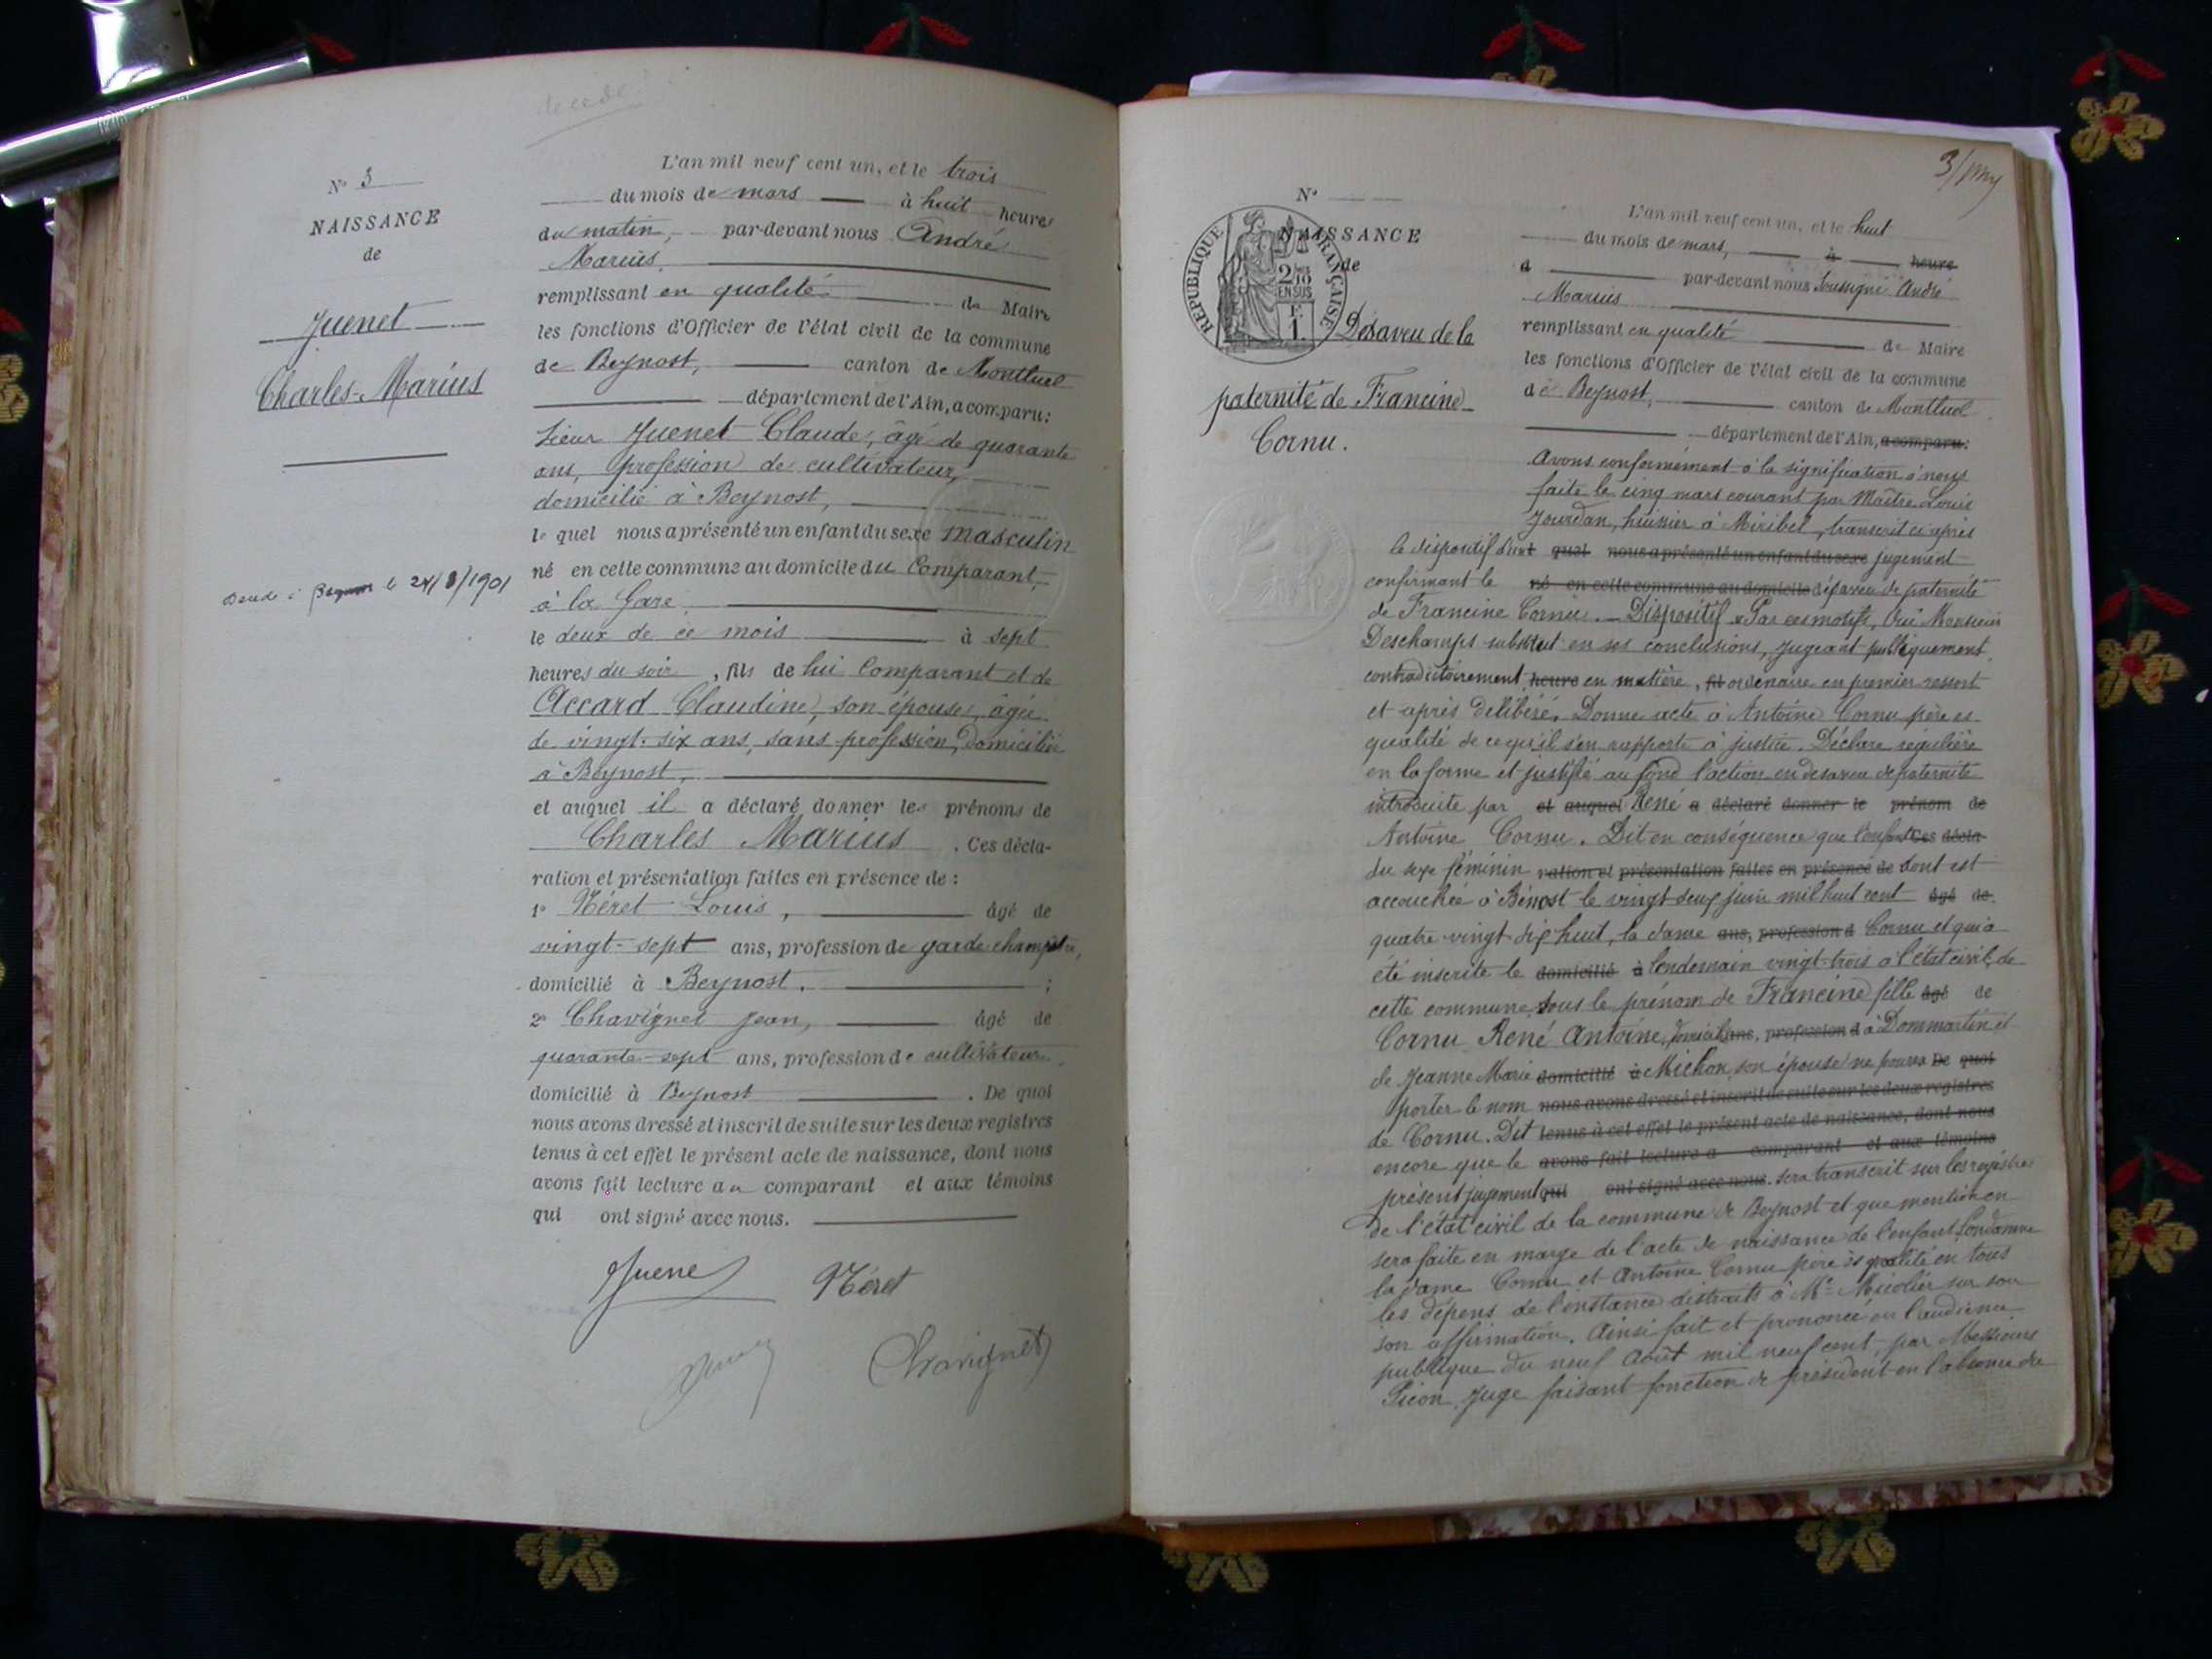 décédé
N° 3
NAISSANCE
de
Juenet
Charles-Marius
le 24/8/1901
L'an mil neuf cent un, et le trois
du mois de mars à huit heures
du matin, par-devant nous André
Marius,
remplissant en qualité de Maire
les fonctions d'Officier de l'état civil de la commune
de Beynost, canton de Montluel
département de l'Ain, a comparu:
Sieur Juenet Claude, âgé de quarante
ans, profession de cultivateur,
domicilié à Beynost,
le quel nous a présenté un enfant du sexe masculin
né en cette commune au domicile du comparant,
à la Gare,
le deux de ce mois à sept
heures du soir, fils de lui comparant et de
Accard Claudine, son épouse, âgée
de vingt-six ans, sans profession, domiciliée
à Beynost,
et auquel il a déclaré donner les prénoms de
Charles Marius. Ces décla-
ration et présentation faites en présence de:
1° Néret Louis, âgé de
vingt-sept ans, profession de garde champêtre,
domicilié à Beynost. ;
2° Chavignet Jean, âgé de
quarante-sept ans, profession de cultivateur
domicilié à Beynost. De quoi
nous avons dressé et inscrit de suite sur les deux registres
tenus à cet effet le présent acte de naissance, dont nous
avons fait lecture au comparant et aux témoins
qui ont signé avec nous.
Juenet Néret
Chavignet
3/
N°
NAISSANCE
de
REPUBLIQUE FRANÇAISE
2/10 EN SUS
F. 1.
Désaveu de la
paternité de Francine
Cornu.
L'an mil neuf cent un, et le huit
du mois de mars, à heure
d par-devant nous soussigné André
Marius
remplissant en qualité de Maire
les fonctions d'Officier de l'état civil de la commune
de Beynost, canton de Montluel
département de l'Ain, a comparu:
Avons conformément à la signification à nous
faite le cinq mars courant par Maître Louis
Jourdan, huissier à Miribel, transcrit ci après
le dispositif d'un quel nous a présenté un enfant du sexe jugement
confirmant le né en cette commune au domicile désaveu de paternité
de Francine Cornu. — Dispositif « Par ces motifs, Oui Monsieur
Deschamps substitut en ses conclusions, jugeant publiquement
contradictoirement heure en matière, fil ordinaire en premier ressort
et après délibéré. Donne acte à Antoine Cornu père es
qualité de ce qu'il s'en rapporte à justice. Déclare régulière
en la forme et justifié au fond l'action en desaveu de paternité
introduite par et auquel René a déclaré donner le prénom de
Antoine Cornu. Dit en conséquence que l'enfant Ces décla-
du sexe féminin ration et présentation faites en présence de dont est
accouchée à Bénost le vingt deux juin mil huit cent âgé de
quatre-vingt-dix huit, la dame ans, profession d Cornu et qui a
été inscrite le domicilié à lendemain vingt-trois à l'état civil de
cette commune sous le prénom de Francine fille âgé de
Cornu René Antoine, ans, profession d à Dommartin et
de Jeanne Marie domicilié à Michon son épouse ne pourra De quoi
porter le nom nous avons dressé et inscrit de suite sur les deux registres
de Cornu. Dit tenus à cet effet le présent acte de naissance, dont nous
encore que le avons fait lecture a comparant et aux témoins
présent jugement qui ont signé avec nous. sera transcrit sur les registres
de l'état civil de la commune de Beynost et que mention en
sera faite en marge de l'acte de naissance de l'enfant Condamne
la dame Cornu et Antoine Cornu père ès qualité en tous
les dépens de l'instance distraits à Me Micolier sur son
son affirmation. Ainsi fait et prononcé en l'audience
publique du neuf Août mil neuf cent, par Messieurs
Picon, Juge faisant fonction de président en l'absence du